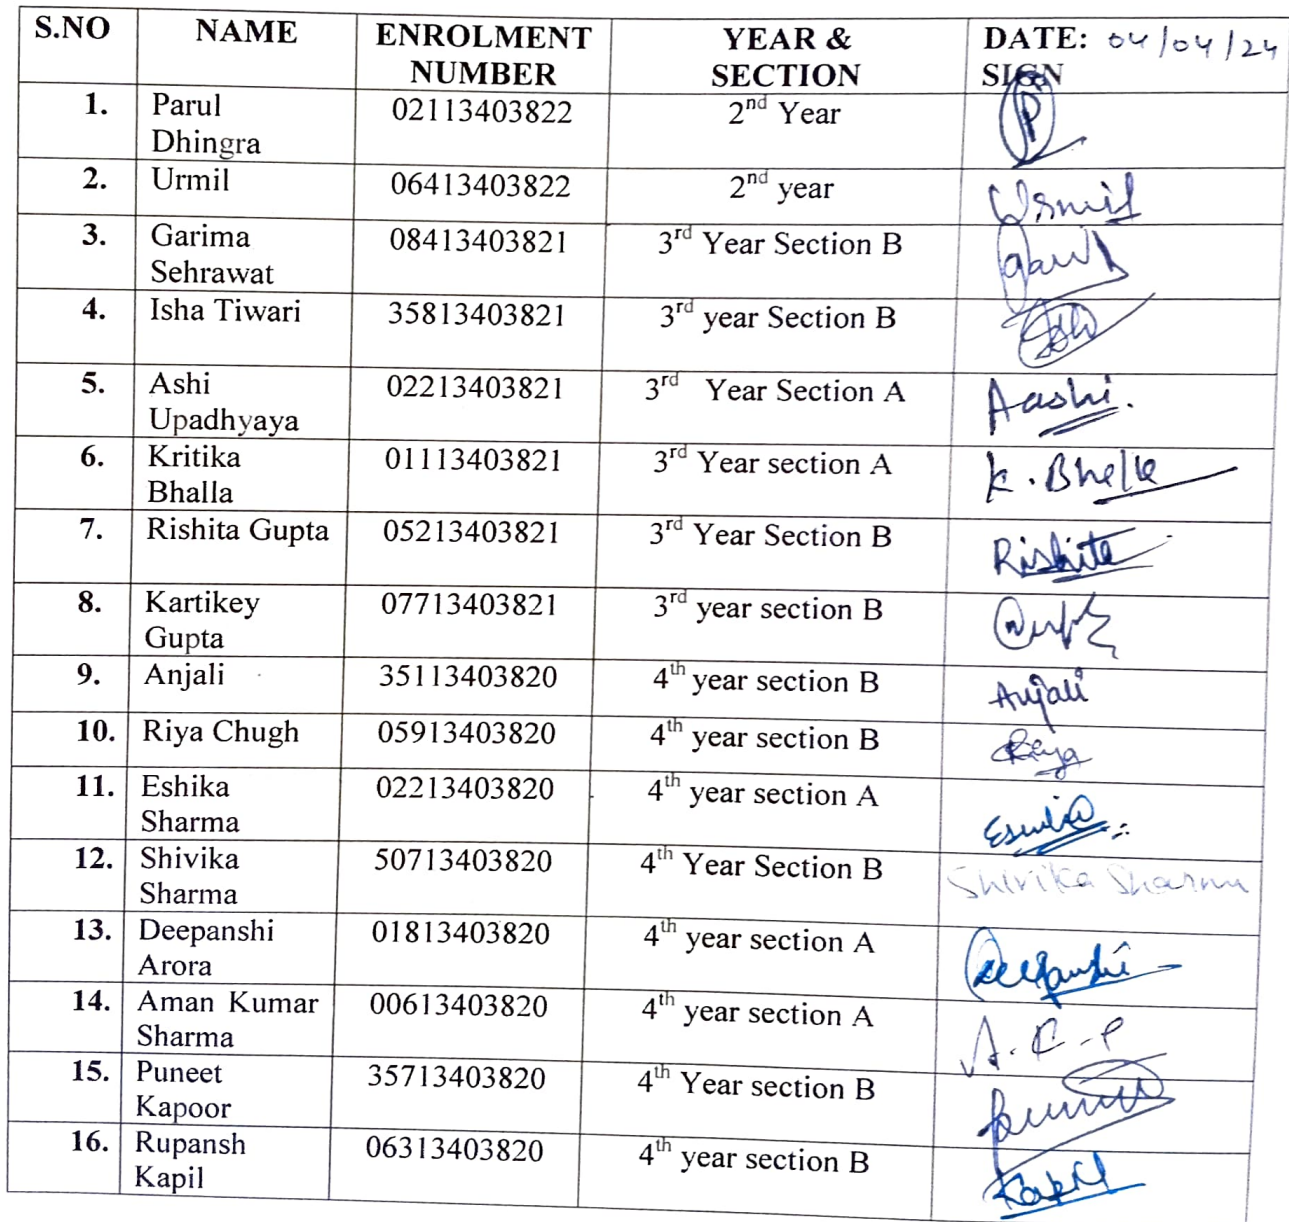 S.NO NAME ENROLMENT NUMBER YEAR & SECTION DATE: 04/04/24 SIGN
1. Parul Dhingra 02113403822 2nd Year
2. Urmil 06413403822 2nd year Urmil
3. Garima Sehrawat 08413403821 3rd Year Section B
4. Isha Tiwari 35813403821 3rd year Section B
5. Ashi Upadhyaya 02213403821 3rd Year Section A Aashi.
6. Kritika Bhalla 01113403821 3rd Year section A K. Bhalla
7. Rishita Gupta 05213403821 3rd Year Section B Rishita
8. Kartikey Gupta 07713403821 3rd year section B
9. Anjali 35113403820 4th year section B Anjali
10. Riya Chugh 05913403820 4th year section B Riya
11. Eshika Sharma 02213403820 4th year section A
12. Shivika Sharma 50713403820 4th Year Section B Shivika Sharma
13. Deepanshi Arora 01813403820 4th year section A Deepanshi
14. Aman Kumar Sharma 00613403820 4th year section A
15. Puneet Kapoor 35713403820 4th Year section B
16. Rupansh Kapil 06313403820 4th year section B Kapil